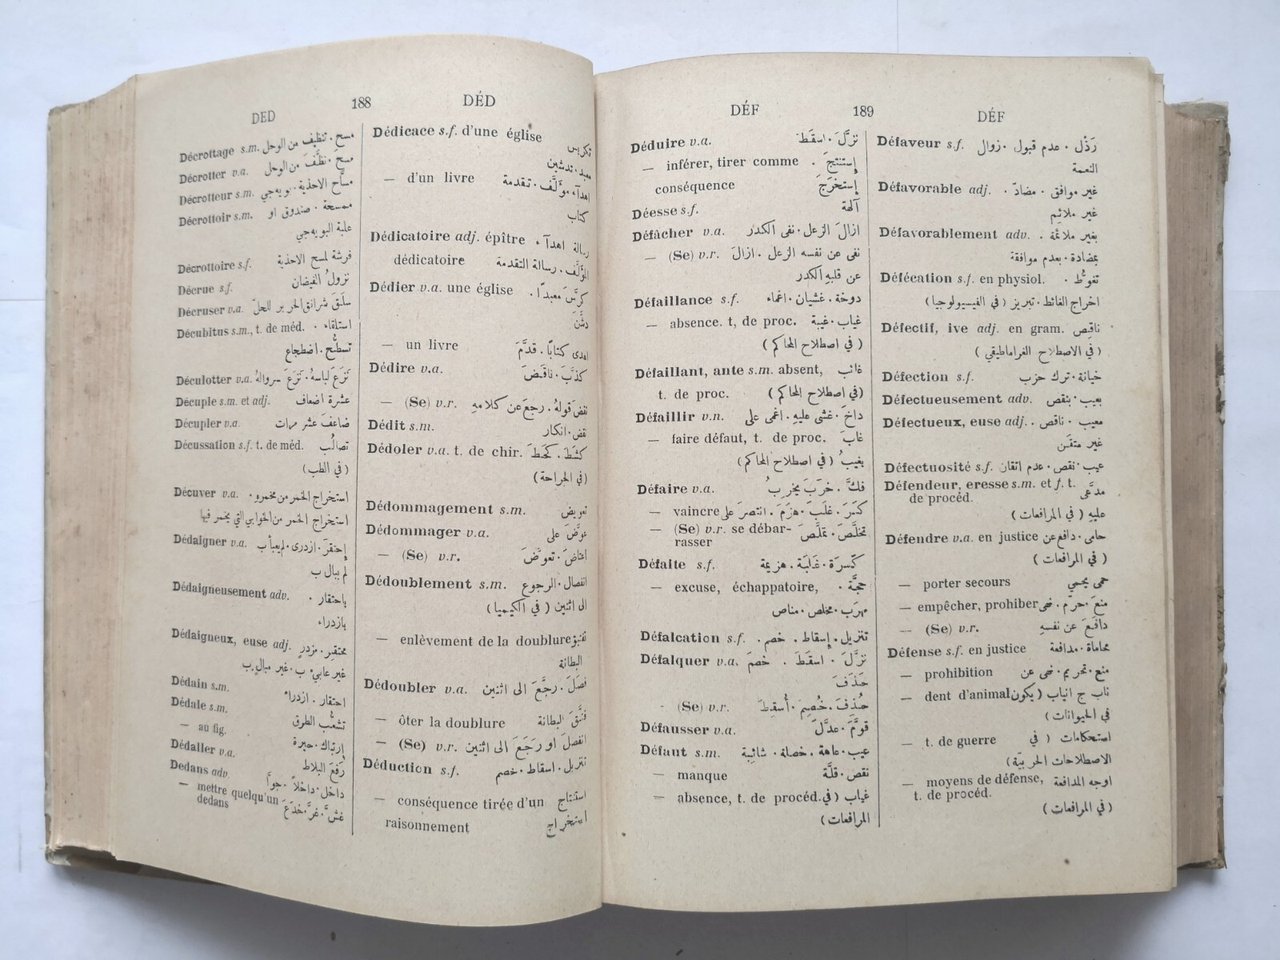 DED 188 DÉD
Décrottage s.m. مسح . تنظيف من الوحل
Décrotter v.a. مسحَ . نظَّفَ من الوحل
Décrotteur s.m. مسَّاح الاحذية . بويه جي
Décrottoir s.m. ممسحة . صندوق او
علبة البويه جي
Décrottoire s.f. فرشة لمسح الاحذية
Décrue s.f. نزولُ الفيضان
Décruser v.a. سلَق شرانق الحرير للحلّ
Décubitus s.m., t. de méd. استلقاء .
تسطُّح . اضطجاع
Déculotter v.a. نَزَعَ لباسهُ . نَزَعَ سروالهُ
Décuple s.m. et adj. عشرة اضعاف
Décupler v.a. ضاعف عشر مرات
Décussation s.f. t. de méd. تصالُب
(في الطب)
Décuver v.a. استخراج الخمر من مخمرو .
استخراج الخمر من الخوابي التي يخمر فيها
Dédaigner v.a. إحتقرَ . ازدرى . لم يعبأ ب
لم يبال ب
Dédaigneusement adv. باحتقار .
بازدراء
Dédaigneux, euse adj. محتقِر . مزدرٍ
غير عابئ ب . غير مبالٍ ب
Dédain s.m. احتقار . ازدراء
Dédale s.m. تشعُّب الطرق
— au fig. إرتباك . حيرة
Dédaller v.a. رَفعَ البلاط
Dedans adv داخل . داخلاً . جوا
— mettre quelqu'un غشَّ . غرَّ . خدَعَ
dedans
Dédicace s.f. d'une église تكريس
معبد . تدشين
— d'un livre اهداء مؤلَّف . تقدمة
كتاب
Dédicatoire adj. épître رسالة اهداء
dédicatoire المؤلَّف . رسالة التقدمة
Dédier v.a. une église كرَّسَ معبداً .
دشَّنَ
— un livre اهدى كتاباً . قدَّمَ
Dédire v.a. كذَّبَ . ناقَضَ
— (Se) v.r. نقض قولهُ . رجعَ عن كلامهِ
Dédit s.m. نقض . انكار
Dédoler v.a. t. de chir. كشَطَ . كحَطَ
(في الجراحة)
Dédommagement s.m. تعويض
Dédommager v.a. عوَّضَ على
— (Se) v.r. اعتاضَ . تعوَّضَ
Dédoublement s.m. انفصال . الرجوع
الى اثنين (في الكيميا)
— enlèvement de la doublure
البطانة
Dédoubler v.a. فصَلَ . رجَّعَ الى اثنين
— ôter la doublure فتَّقَ البطانة
— (Se) v.r. انفصلَ او رَجَعَ الى اثنين
Déduction s.f. تنزيل . اسقاط . خصم
— conséquence tirée d'un استنتاج
raisonnement استخراج
DÉF 189 DÉF
Déduire v.a. نزَّلَ . اسقَطَ
— inférer, tirer comme إستنتجَ .
conséquence إستخرَجَ
Déesse s.f. آلهة
Défâcher v.a. ازالَ الزعل . نفى الكدر
— (Se) v.r. نفى عن نفسه الزعل . ازالَ
عن قلبهِ الكدر
Défaillance s.f. دوخة . غشيان . اغماء
— absence. t. de proc. غياب . غيبة
(في اصطلاح المحاكم)
Défaillant, ante s.m. absent, غائب
t. de proc. (في اصطلاح المحاكم)
Défaillir v.n. داخَ . غشى عليهِ . اغمى على
— faire défaut, t. de proc. غابَ
يغيبُ (في اصطلاح المحاكم)
Défaire v.a. فكَّ . خرَّبَ يخرِبُ
— vaincre كسَرَ . غلَبَ . هزَمَ . انتصرَ على
— (Se) v.r. se débar- تخلَّصَ . تملَّصَ
rasser
Défaite s.f. كَسرَة . غَلبَة . هزيمة
— excuse, échappatoire, حجَّة .
مهرَب . مخلص . مناص
Défalcation s.f. تنزيل . إسقاط . خصم .
Défalquer v.a. نزَّلَ . اسقَطَ . خصمَ .
حَذَفَ
(Se) v.r. حُذفَ . خُصِمَ . أُسقِطَ
Défausser v.a. قوَّمَ . عدَّلَ
Défaut s.m. عيب . عاهة . خصلة . شائبة
— manque نقص . قلَّة
— absence, t. de procéd. غياب (في
المرافعات)
Défaveur s.f. رَذْل . عدم قبول . زوال
النعمة
Défavorable adj. غير موافق . مضادّ .
غير ملائم
Défavorablement adv. بغير ملائمة .
بمضادة . بعدم موافقة
Défécation s.f. en physiol. تغوُّط .
اخراج الغائط . تبريز (في الفيسيولوجيا)
Défectif, ive adj. en gram. ناقِص
(في الاصطلاح الغراماطيقي)
Défection s.f. خيانة . ترك حزب
Défectueusement adv. بعيب . بنقص
Défectueux, euse adj. معيب . ناقص .
غير متقَن
Défectuosité s.f. عيب . نقص . عدم اتقان
Défendeur, eresse s.m. et f. t. مدعَّى
de procéd.
عليهِ (في المرافعات)
Défendre v.a. en justice حامى . دافعَ عن
(في المرافعات)
— porter secours حمى يحمي
— empêcher, prohiber منعَ . حرَّم . نهى
— (Se) v.r. دافَعَ عن نفسهِ
Défense s.f. en justice محاماة . مدافعة
— prohibition منع . تحريم . نهى عن
— dent d'animal ناب ج انياب (يكون
في الحيوانات)
— t. de guerre استحكامات (في
الاصطلاحات الحربيَّة)
— moyens de défense, اوجه المدافعة
t. de procéd.
(في المرافعات)